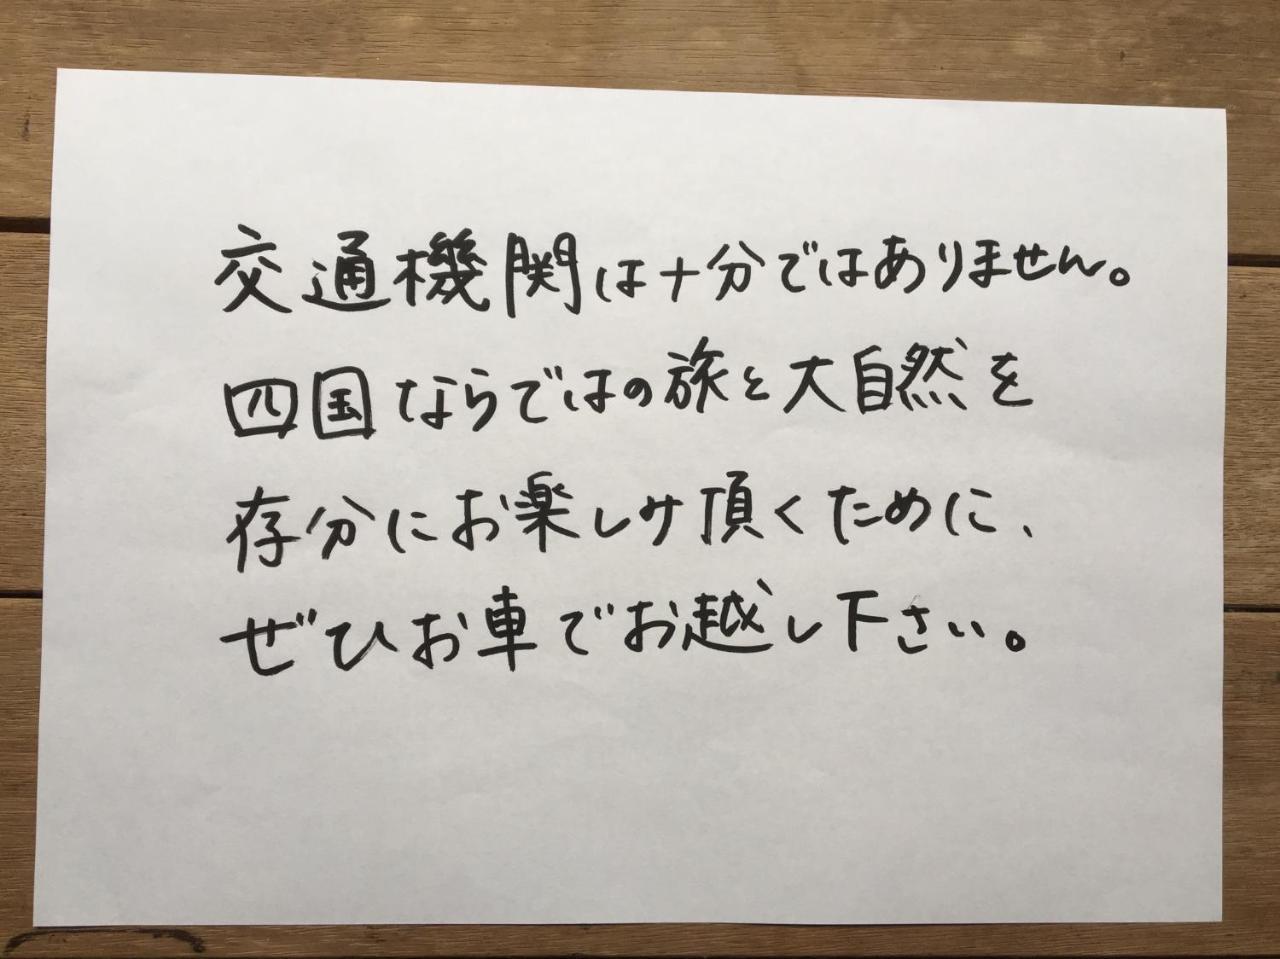 交通機関は十分ではありません。
四国ならではの旅と大自然を
存分にお楽しみ頂くために、
ぜひお車でお越し下さい。